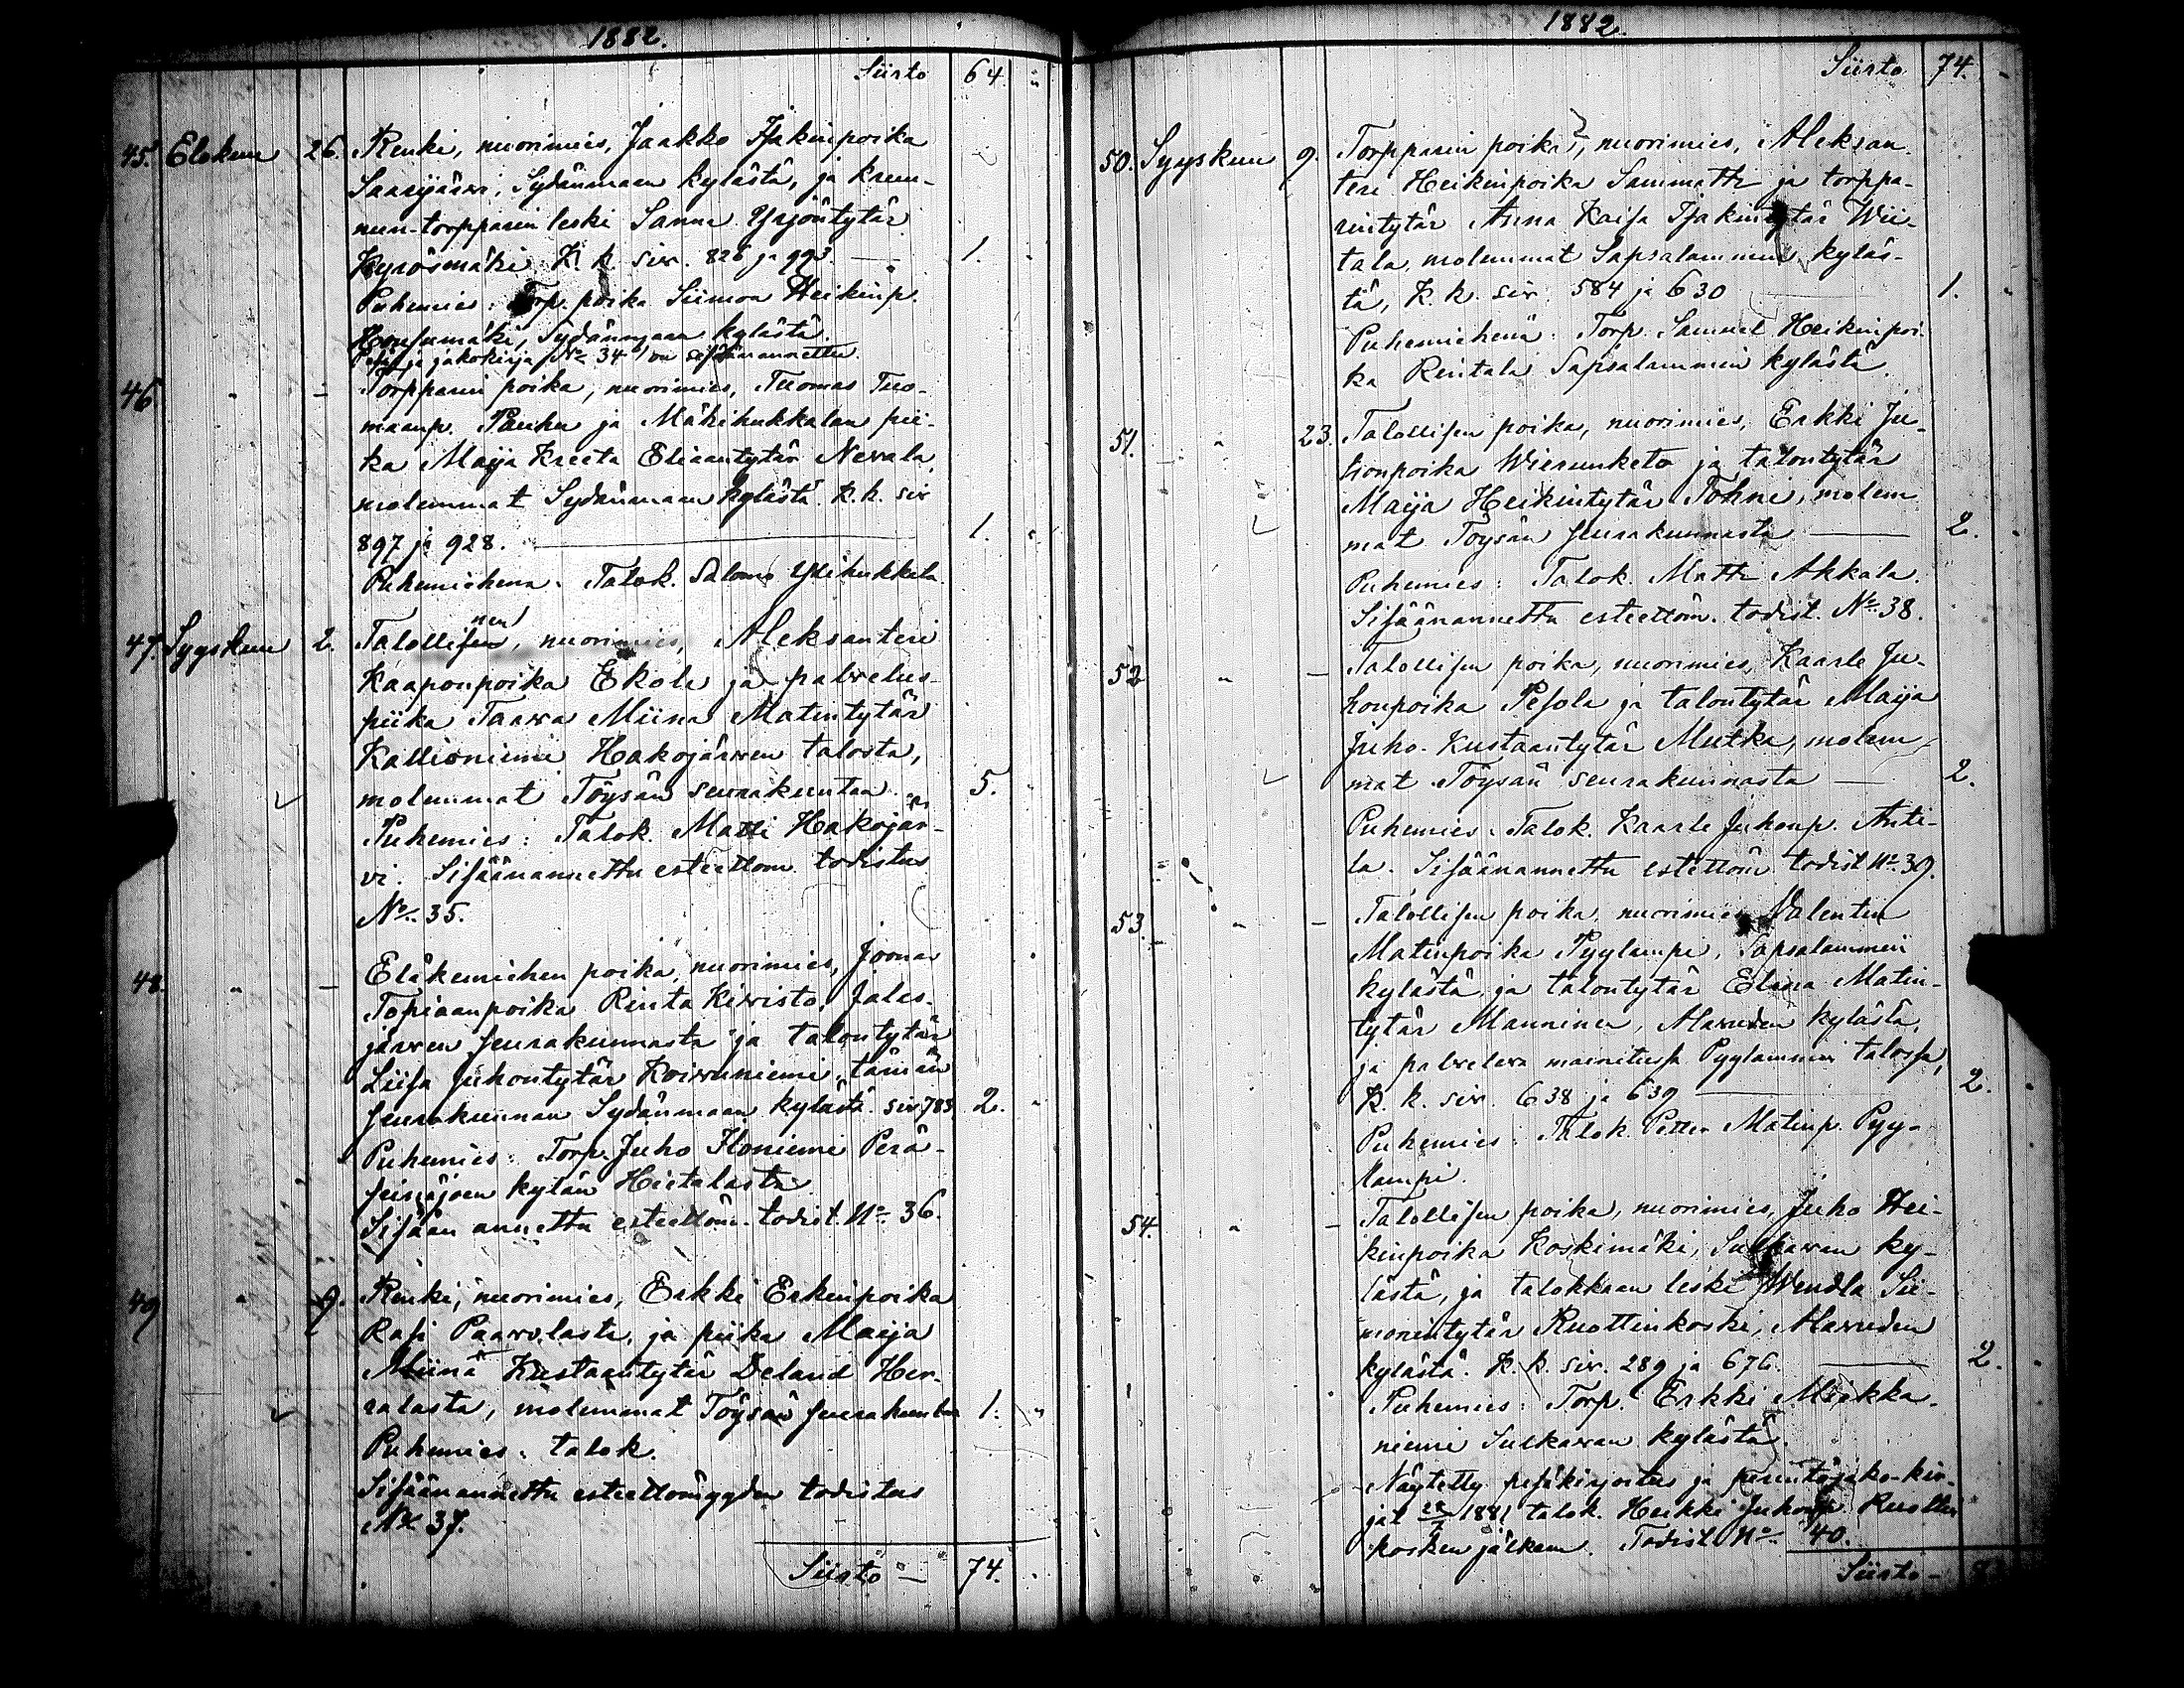 1882.
Siirto 64. "
45. Elokuu 26. Renki, nuorimies, Jaakko Isakinpoika
Saarijärvi, Sydänmaan kylästä, ja kruu-
nun-torpparin leski Sanna Yrjöntytär
Kyrösmäki K. k. siv. 826 ja 993. — 1.
Puhemies: Torp. poika Siimon Heikinp.
Honsumäki, Sydänmaan kylästä.
Pesä- ja jakokirja No 34 on sisäänannettu.
46. " — Torpparin poika, nuorimies, Tuomas Tuo-
maanp. Panhu ja Mäkihukkalan pii-
ka Maija Kreeta Eliaantytär Nevala,
molemmat Sydänmaan kylästä. K. k. siv
897 ja 928. — 1. "
Puhemiehenä: Talok. Salomo Ylihukkala
47. Syyskuu 2. Talollisen, nuorimies, Aleksanteri
nen
Kaaponpoika Ekola ja palvelus-
piika Taava Miina Matintytär
Kallioniemi Hakojärven talosta,
molemmat Töysän seurakuntaa. 5.
Puhemies: Talok. Matti Hakojär-
vi. Sisäänannettu esteettöm. todistus
No 35.
48. " — Eläkemiehen poika, nuorimies, Joonas
Topiaanpoika Rinta Kivistö, Jalas-
järven seurakunnasta ja talontytär
Liisa Juhontytär Koivuniemi, tämän
seurakunnan Sydänmaan kylästä. siv 783 2. "
Puhemies: Torp. Juho Iloniemi Perä-
seinäjoen kylän Hietalasta.
Sisään annettu esteettöm. todist. No 36.
49 " 9. Renki, nuorimies, Erkki Erkinpoika
Rasi Paavolasta, ja piika Maija
Miina Kustaantytär Deland Her-
ralasta, molemmat Töysän seurakuntaa 1. "
Puhemies: talok.
Sisäänannettu esteettömyyden todistus
No 37.
Siirto — 74.
1882.
Siirto 74. -
50. Syyskuu 9. Torpparin poika, nuorimies, Aleksan-
teri Heikinpoika Sammatti ja torppa-
rintytär Anna Kaisa Isakintytär Wii-
tala, molemmat Sapsalammin kyläs-
tä, K. k. siv. 584 ja 630 1.
Puhemiehenä: Torp. Samuel Heikinpoi-
ka Rintala Sapsalammin kylästä.
51. " 23. Talollisen poika, nuorimies, Erkki Ju-
honpoika Wierunketo ja talontytär
Maija Heikintytär Tohni, molem
mat Töysän seurakunnasta — 2.
Puhemies: Talok. Matti Akkala.
Sisäänannettu esteettöm. todist. No 38.
52 " — Talollisen poika, nuorimies, Kaarle Ju-
honpoika Pesola ja talontytär Maija
Juho-Kustaantytär Mutka, molem-
mat Töysän seurakunnasta — 2.
Puhemies: Talok. Kaarle Juhonp. Anti-
la. Sisäänannettu esteettöm todist No 39.
53. " — Talollisen poika, nuorimies, Valentin
Matinpoika Pyylampi, Sapsalammin
kylästä, ja talontytär Elina Matin-
tytär Manninen, Alavuden kylästä,
ja palveleva mainitussa Pyylammin talossa,
K. k. siv. 638 ja 639 — 2.
Puhemies: Talok. Petter Matinp. Pyy-
lampi.
54. " — Talollisen poika, nuorimies, Juho Hei-
kinpoika Koskimäki, Sulkavan ky-
lästä, ja talokkaan leski Wendla Sii-
monintytär Ruottinkoski, Alavuden
kylästä. K. k. siv. 289 ja 676. — 2.
Puhemies: Torp. Erkki Miekka-
niemi Sulkavan kylästä.
Näytetty pesäkirjoitus ja perintöjako-kir-
jat 28/7 1881 talok. Heikki Juhonp. Ruottin
kosken jälkeen. Todist No 40.
Siirto —